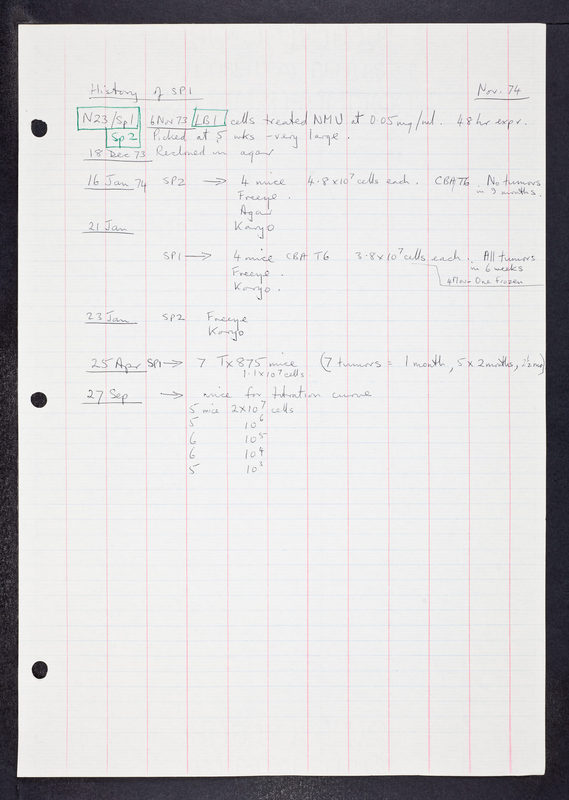 History of SP1 Nov. 74
N23/Sp1 6 Nov 73 LB1 cells treated NMU at 0.05mg/ml. 48 hr expr.
Sp2 Picked at 5 wks - very large.
18 Dec 73 Recloned in agar
16 Jan 74 SP2 → 4 mice 4.8 x 10⁷ cells each. CBAT6. No tumors
in 9 months.
Freeze.
Agar
21 Jan Karyo
SP1 → 4 mice CBA T6 3.8 x 10⁷ cells each. All tumors
in 6 weeks
Freeze. 4 Mar - One frozen
Karyo.
23 Jan SP2 Freeze
Karyo
25 Apr SP1 → 7 Tx 875 mice (7 tumors = 1 month, 5 x 2 months,
1.1 x 10⁷ cells
27 Sep → mice for titration curve
5 mice 2 x 10⁷ cells
5 10⁶
6 10⁵
6 10⁴
5 10³